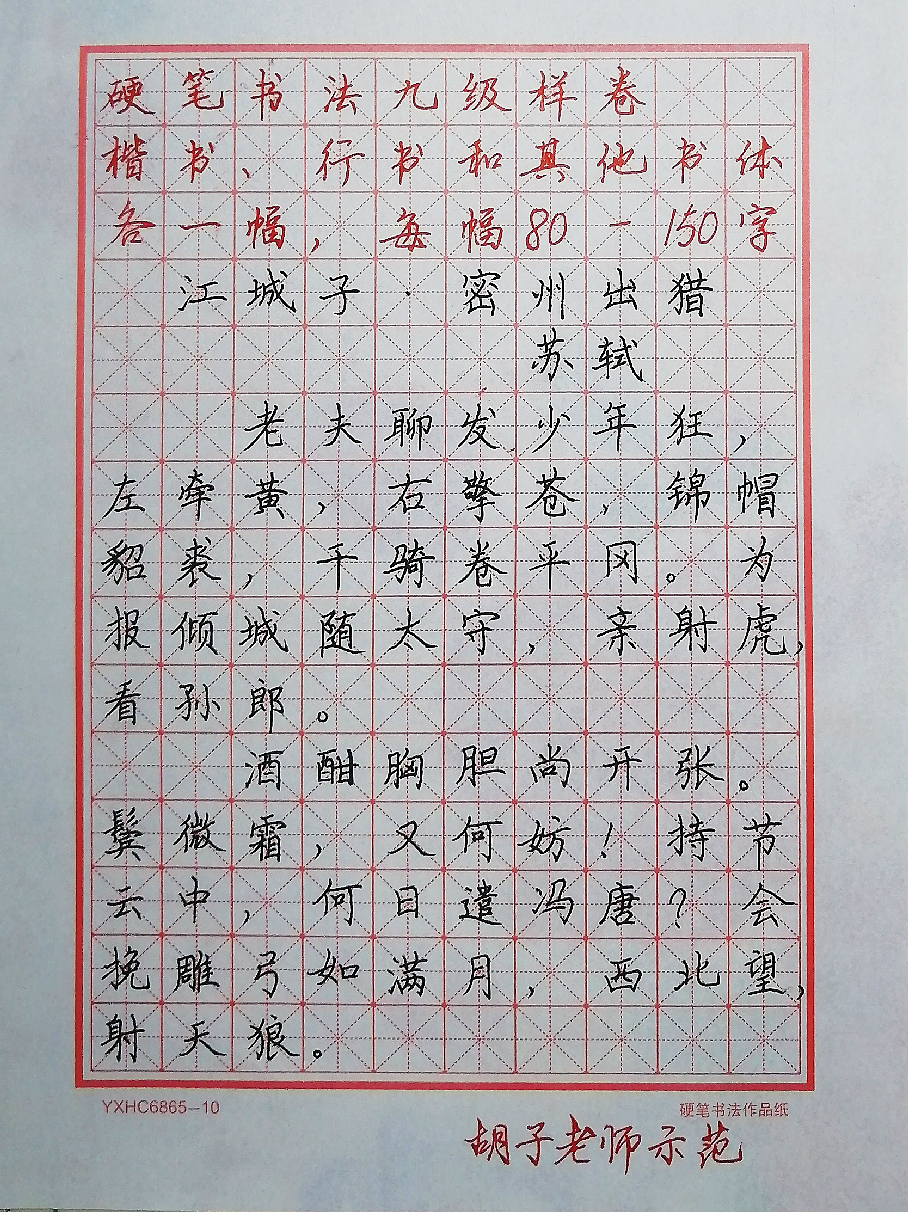 硬笔书法九级样卷
楷书、行书和其他书体
各一幅，每幅80-150字
江城子·密州出猎
苏轼
老夫聊发少年狂，
左牵黄，右擎苍，锦帽
貂裘，千骑卷平冈。为
报倾城随太守，亲射虎，
看孙郎。
酒酣胸胆尚开张。
鬓微霜，又何妨！持节
云中，何日遣冯唐？会
挽雕弓如满月，西北望，
射天狼。
YXHC6865-10
硬笔书法作品纸
胡子老师示范